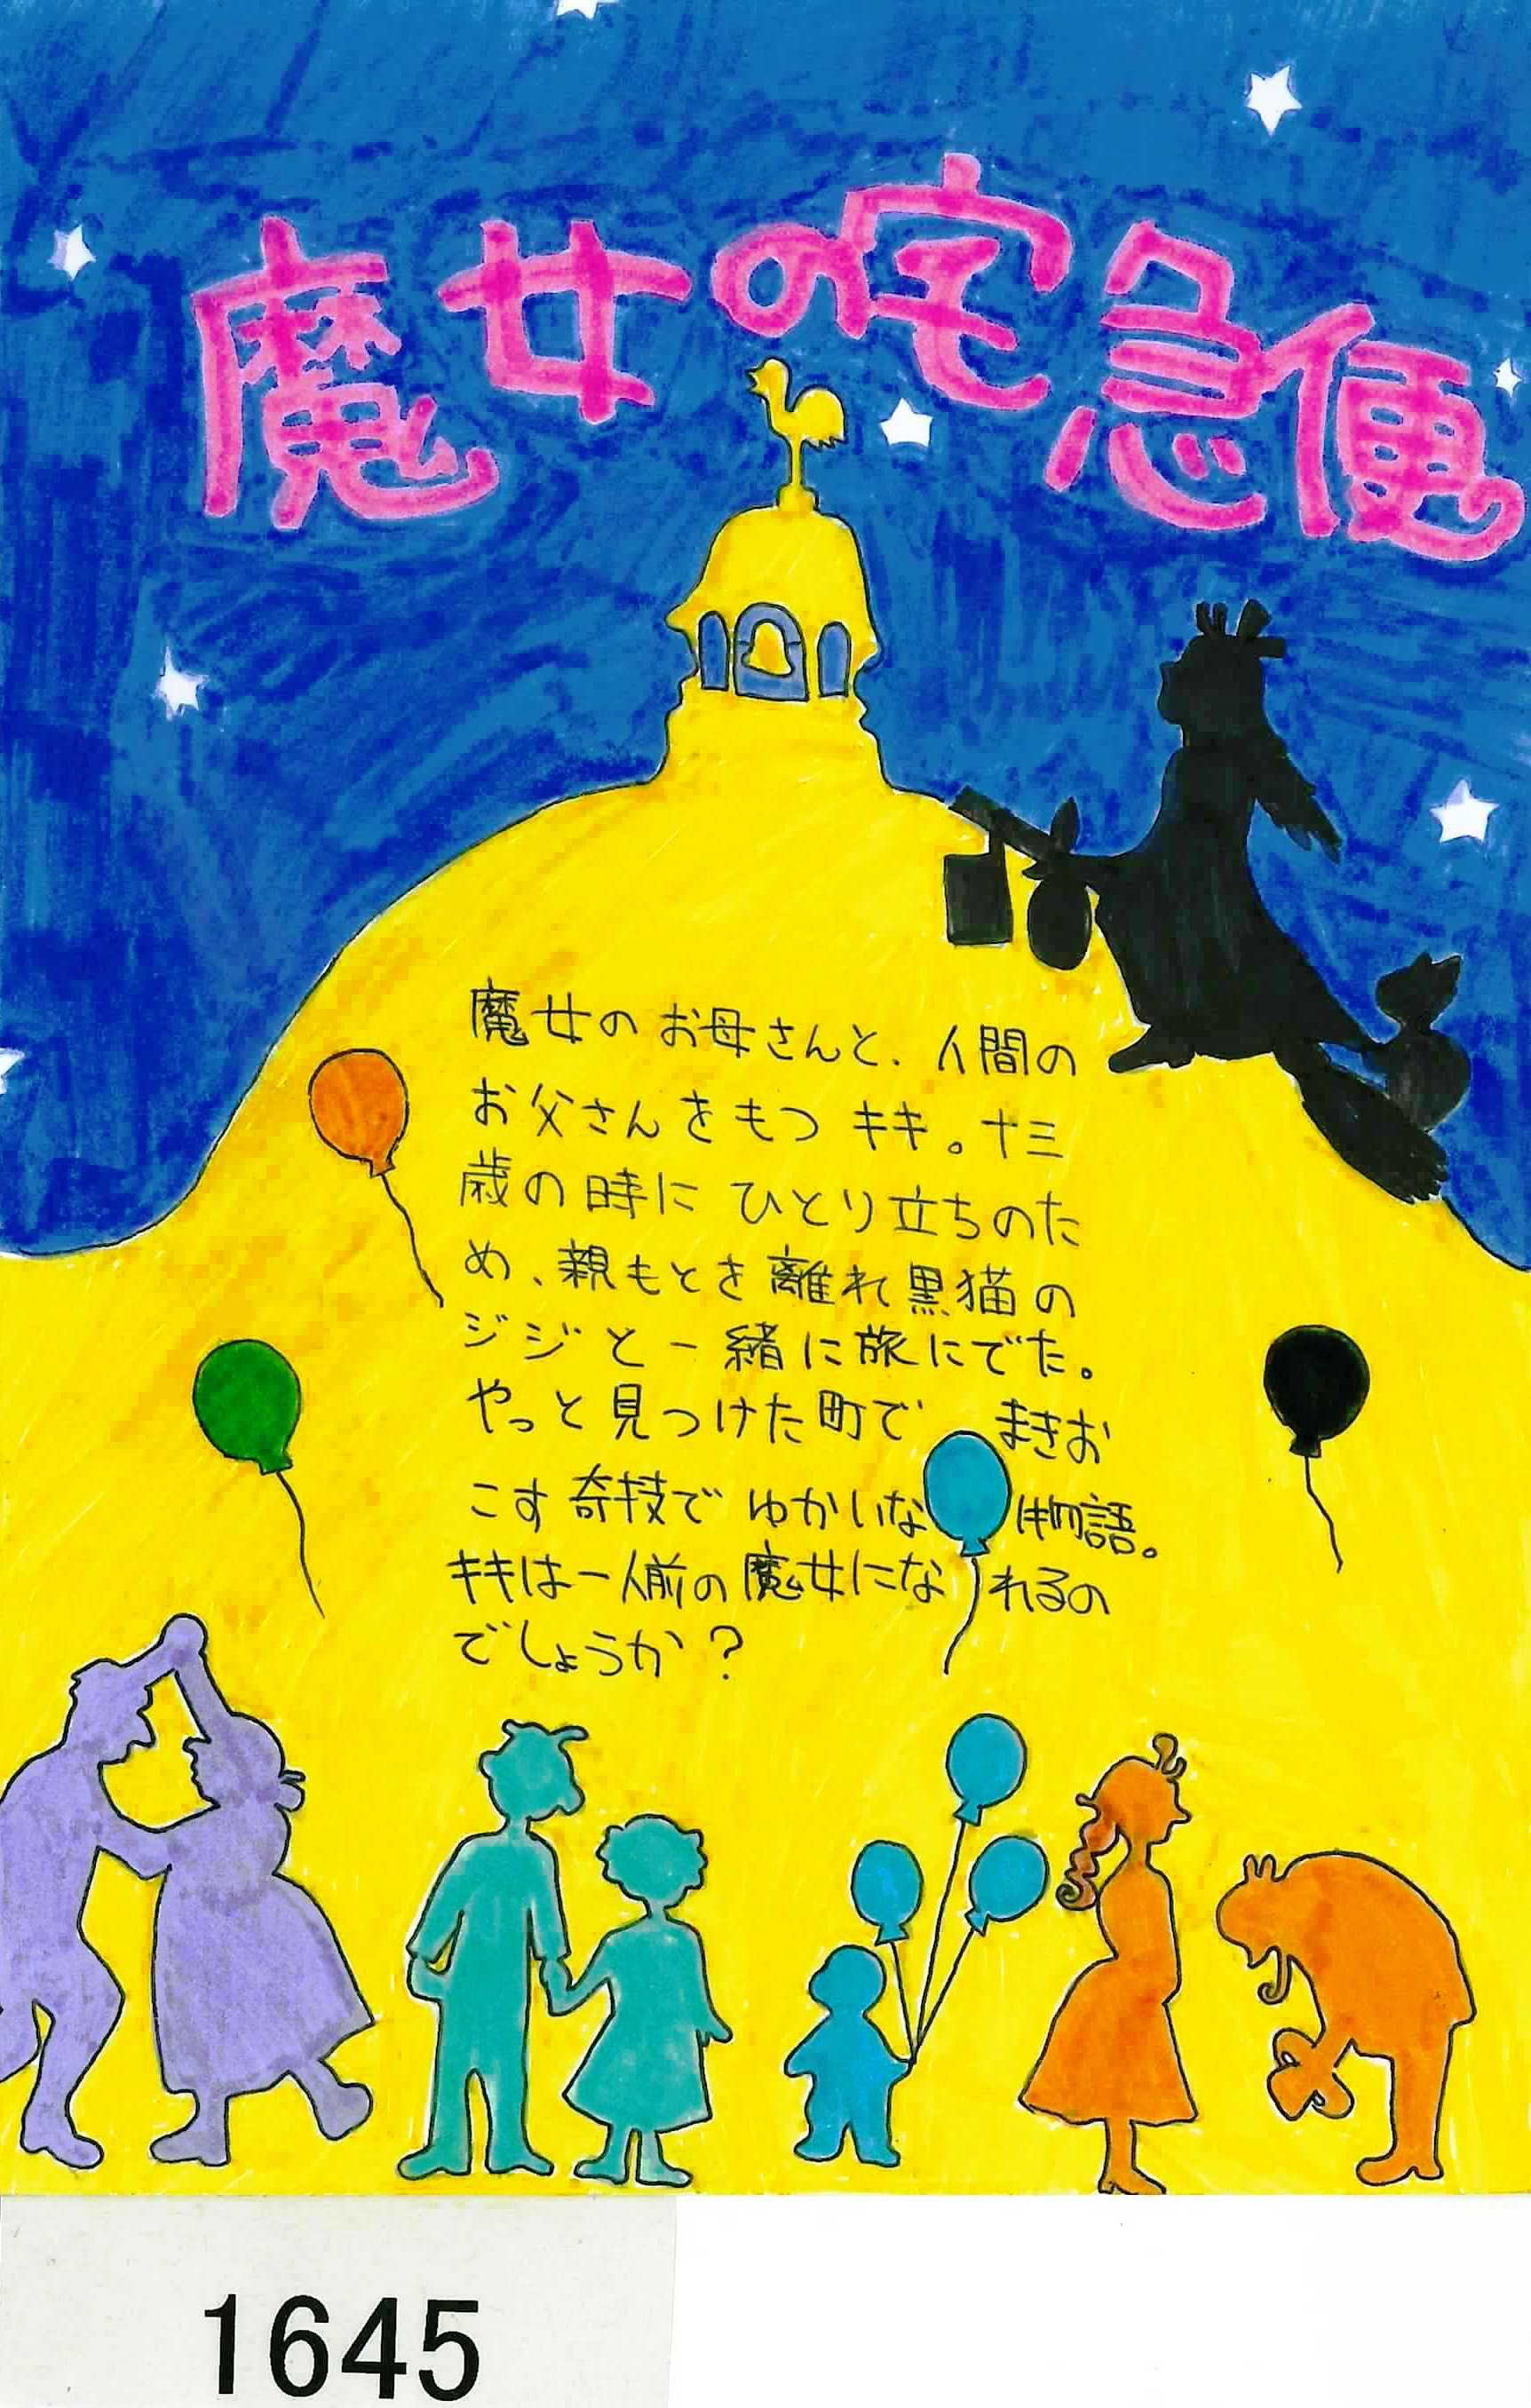 魔女の宅急便
魔女のお母さんと、人間の
お父さんをもつ キキ。十三
歳の時に ひとり立ちのた
め、親もとき離れ黒猫の
ジジと一緒に旅にでた。
やっと見つけた町で まきお
こす 奇技で ゆかいな 物語。
キキは一人前の魔女になれるの
でしょうか?
1645